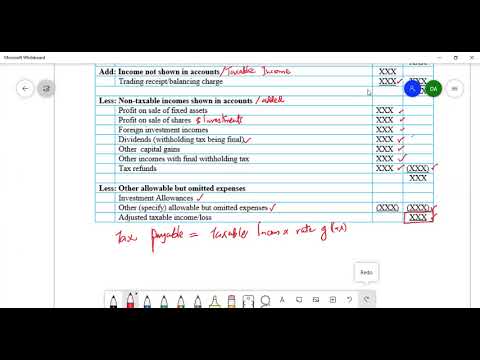 Microsoft Whiteboard
XXX
Add: Income not shown in accounts /Taxable Income
XXX
Trading receipt/balancing charge
XXX
XXX
DA
Less: Non-taxable incomes shown in accounts /added
Profit on sale of fixed assets
XXX
Profit on sale of shares & Investments
XXX
Foreign investment incomes
XXX
Dividends (withholding tax being final)
XXX
Other capital gains
XXX
Other incomes with final withholding tax
XXX
Tax refunds
XXX
(XXX)
XXX
Less: Other allowable but omitted expenses
Investment Allowances
Other (specify) allowable but omitted expenses
(XXX)
(XXX)
Adjusted taxable income/loss
XXX
Tax payable = Taxable Income x rate
Redo